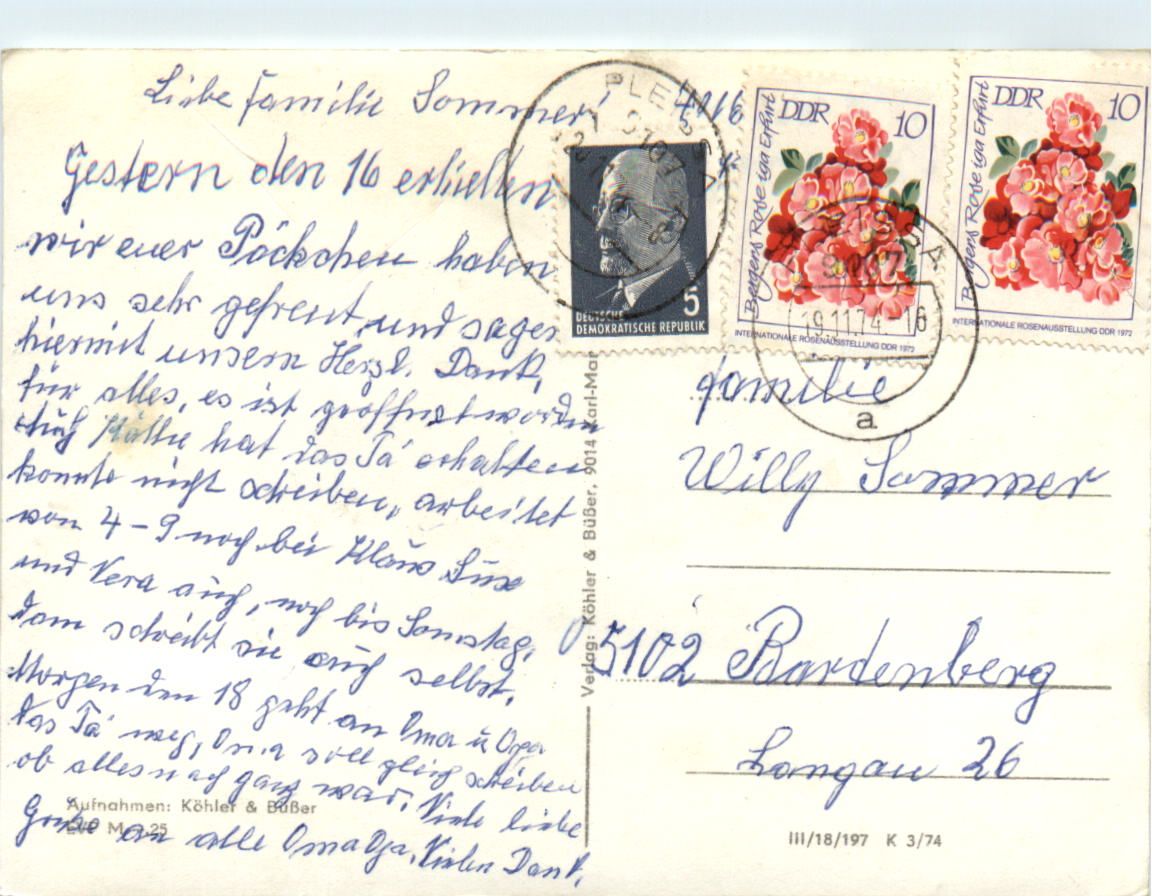 Liebe Familie Sommer!
Gestern den 16 erhielten
wir euer Päckchen haben
uns sehr gefreut und sagen
hiermit unsern Herzl. Dank,
für alles, es ist geöffnet worden
auch hat das Pä erhalten
konnte nicht schreiben, arbeitet
von 4-9 noch bei Klaus
und Vera auch, noch bis Samstag,
dann schreibt sie auch selbst.
Morgen den 18 geht an Oma u Opa
das Pä weg, Oma soll gleich schreiben
ob alles noch ganz war. Viele liebe
Grüße an alle Oma Opa. Vielen Dank.
Aufnahmen: Köhler & Büßer
M -,25
Verlag: Köhler & Büßer, 9014 Karl-Mar
PLEISSA
9107
5
DEUTSCHE
DEMOKRATISCHE REPUBLIK
DDR 10
Bergers Rose iga Erfurt
INTERNATIONALE ROSENAUSSTELLUNG DDR 1972
DDR 10
Bergers Rose iga Erfurt
INTERNATIONALE ROSENAUSSTELLUNG DDR 1972
9107
19.11.74-16
a
Familie
Willy Sommer
5102 Bardenberg
Langau 26
III/18/197 K 3/74